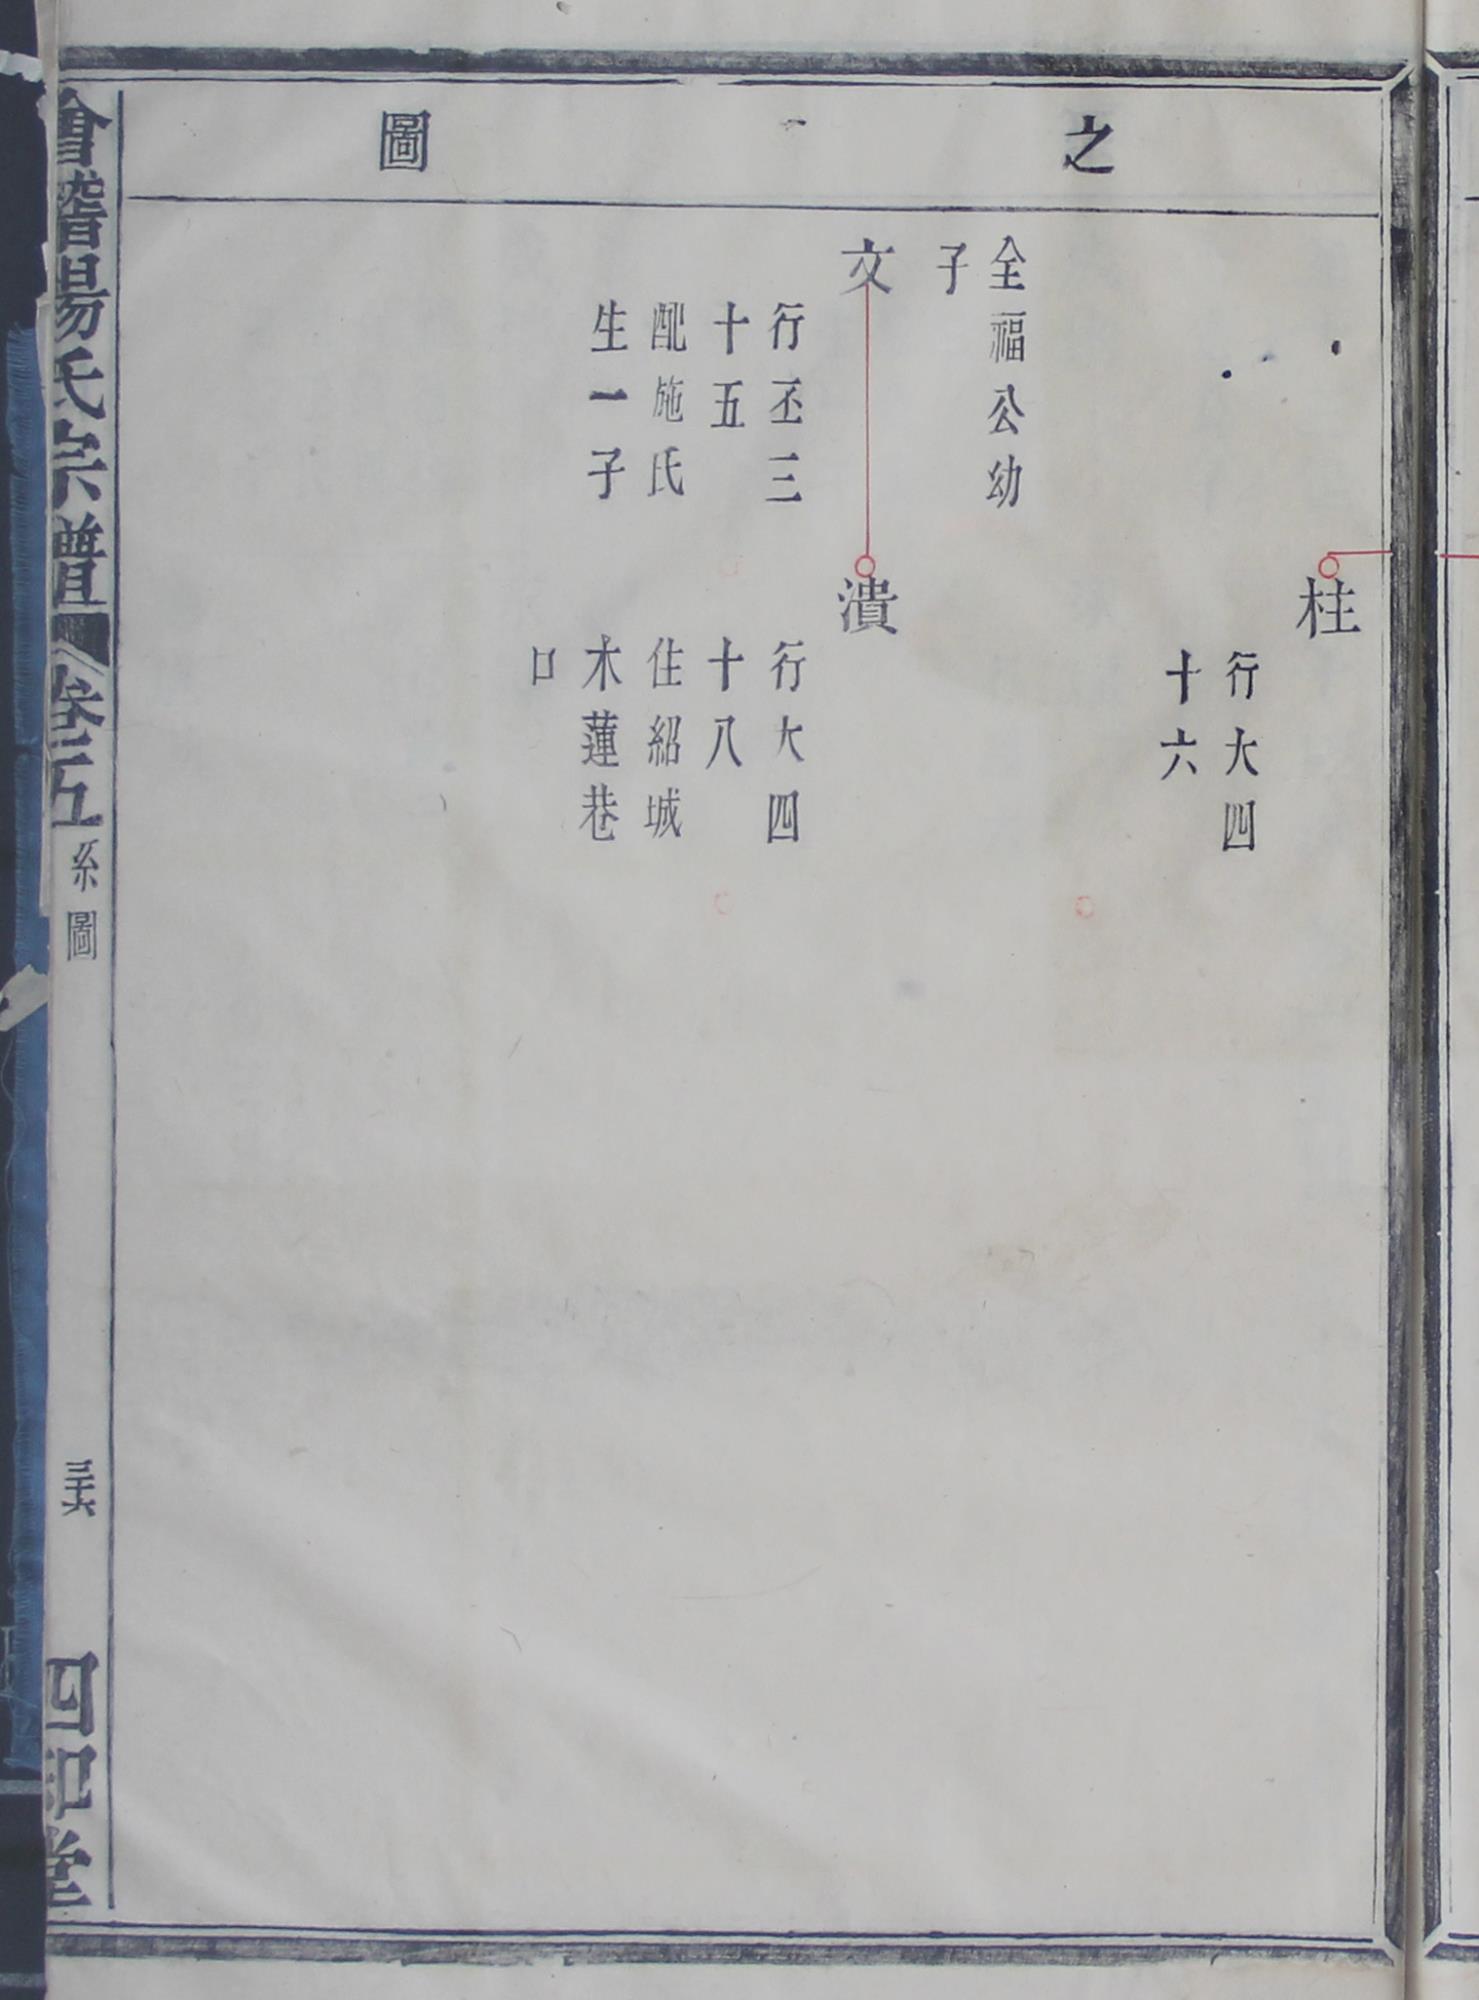 之
圖
柱
行大四
十六
全福公幼
子
文
行丕三
十五
配施氏
生一子
潰
行大四
十八
住紹城
木蓮巷
口
會稽陽氏宗譜
卷五
系圖
三十六
四知堂